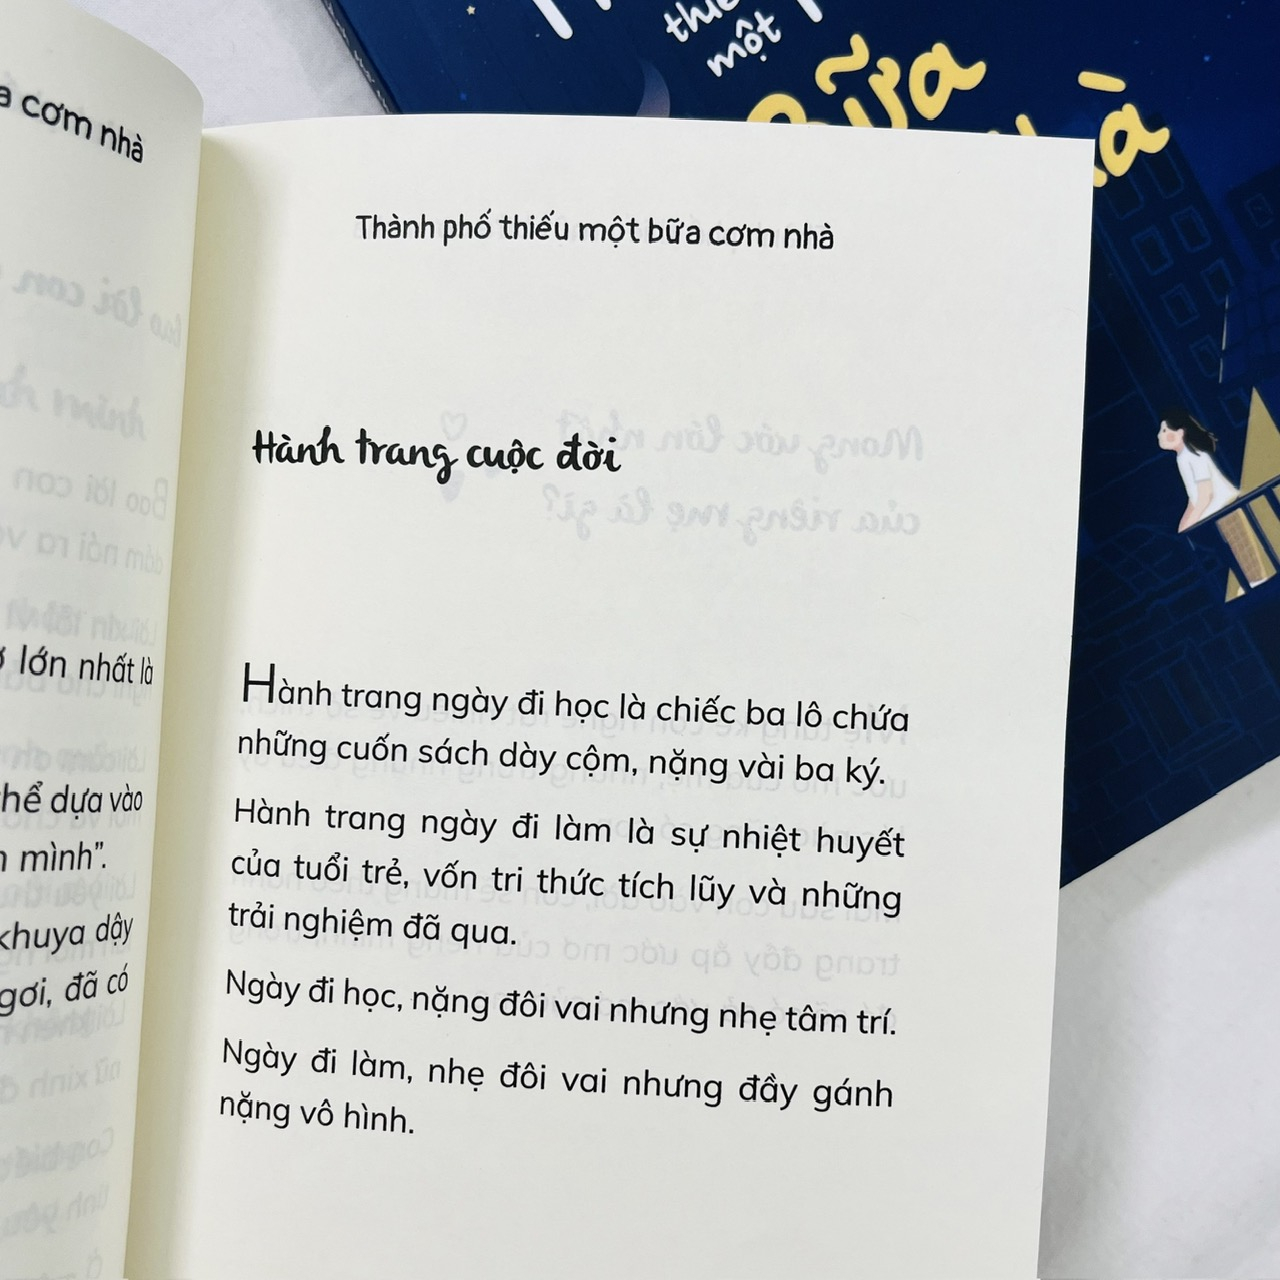 thiếu
một
Bữa
cơm nhà
lớn nhất là
thể dựa vào
mình”.
khuya dậy
đã có
Thành phố thiếu một bữa cơm nhà
Hành trang cuộc đời
Hành trang ngày đi học là chiếc ba lô chứa
những cuốn sách dày cộm, nặng vài ba ký.
Hành trang ngày đi làm là sự nhiệt huyết
của tuổi trẻ, vốn tri thức tích lũy và những
trải nghiệm đã qua.
Ngày đi học, nặng đôi vai nhưng nhẹ tâm trí.
Ngày đi làm, nhẹ đôi vai nhưng đầy gánh
nặng vô hình.